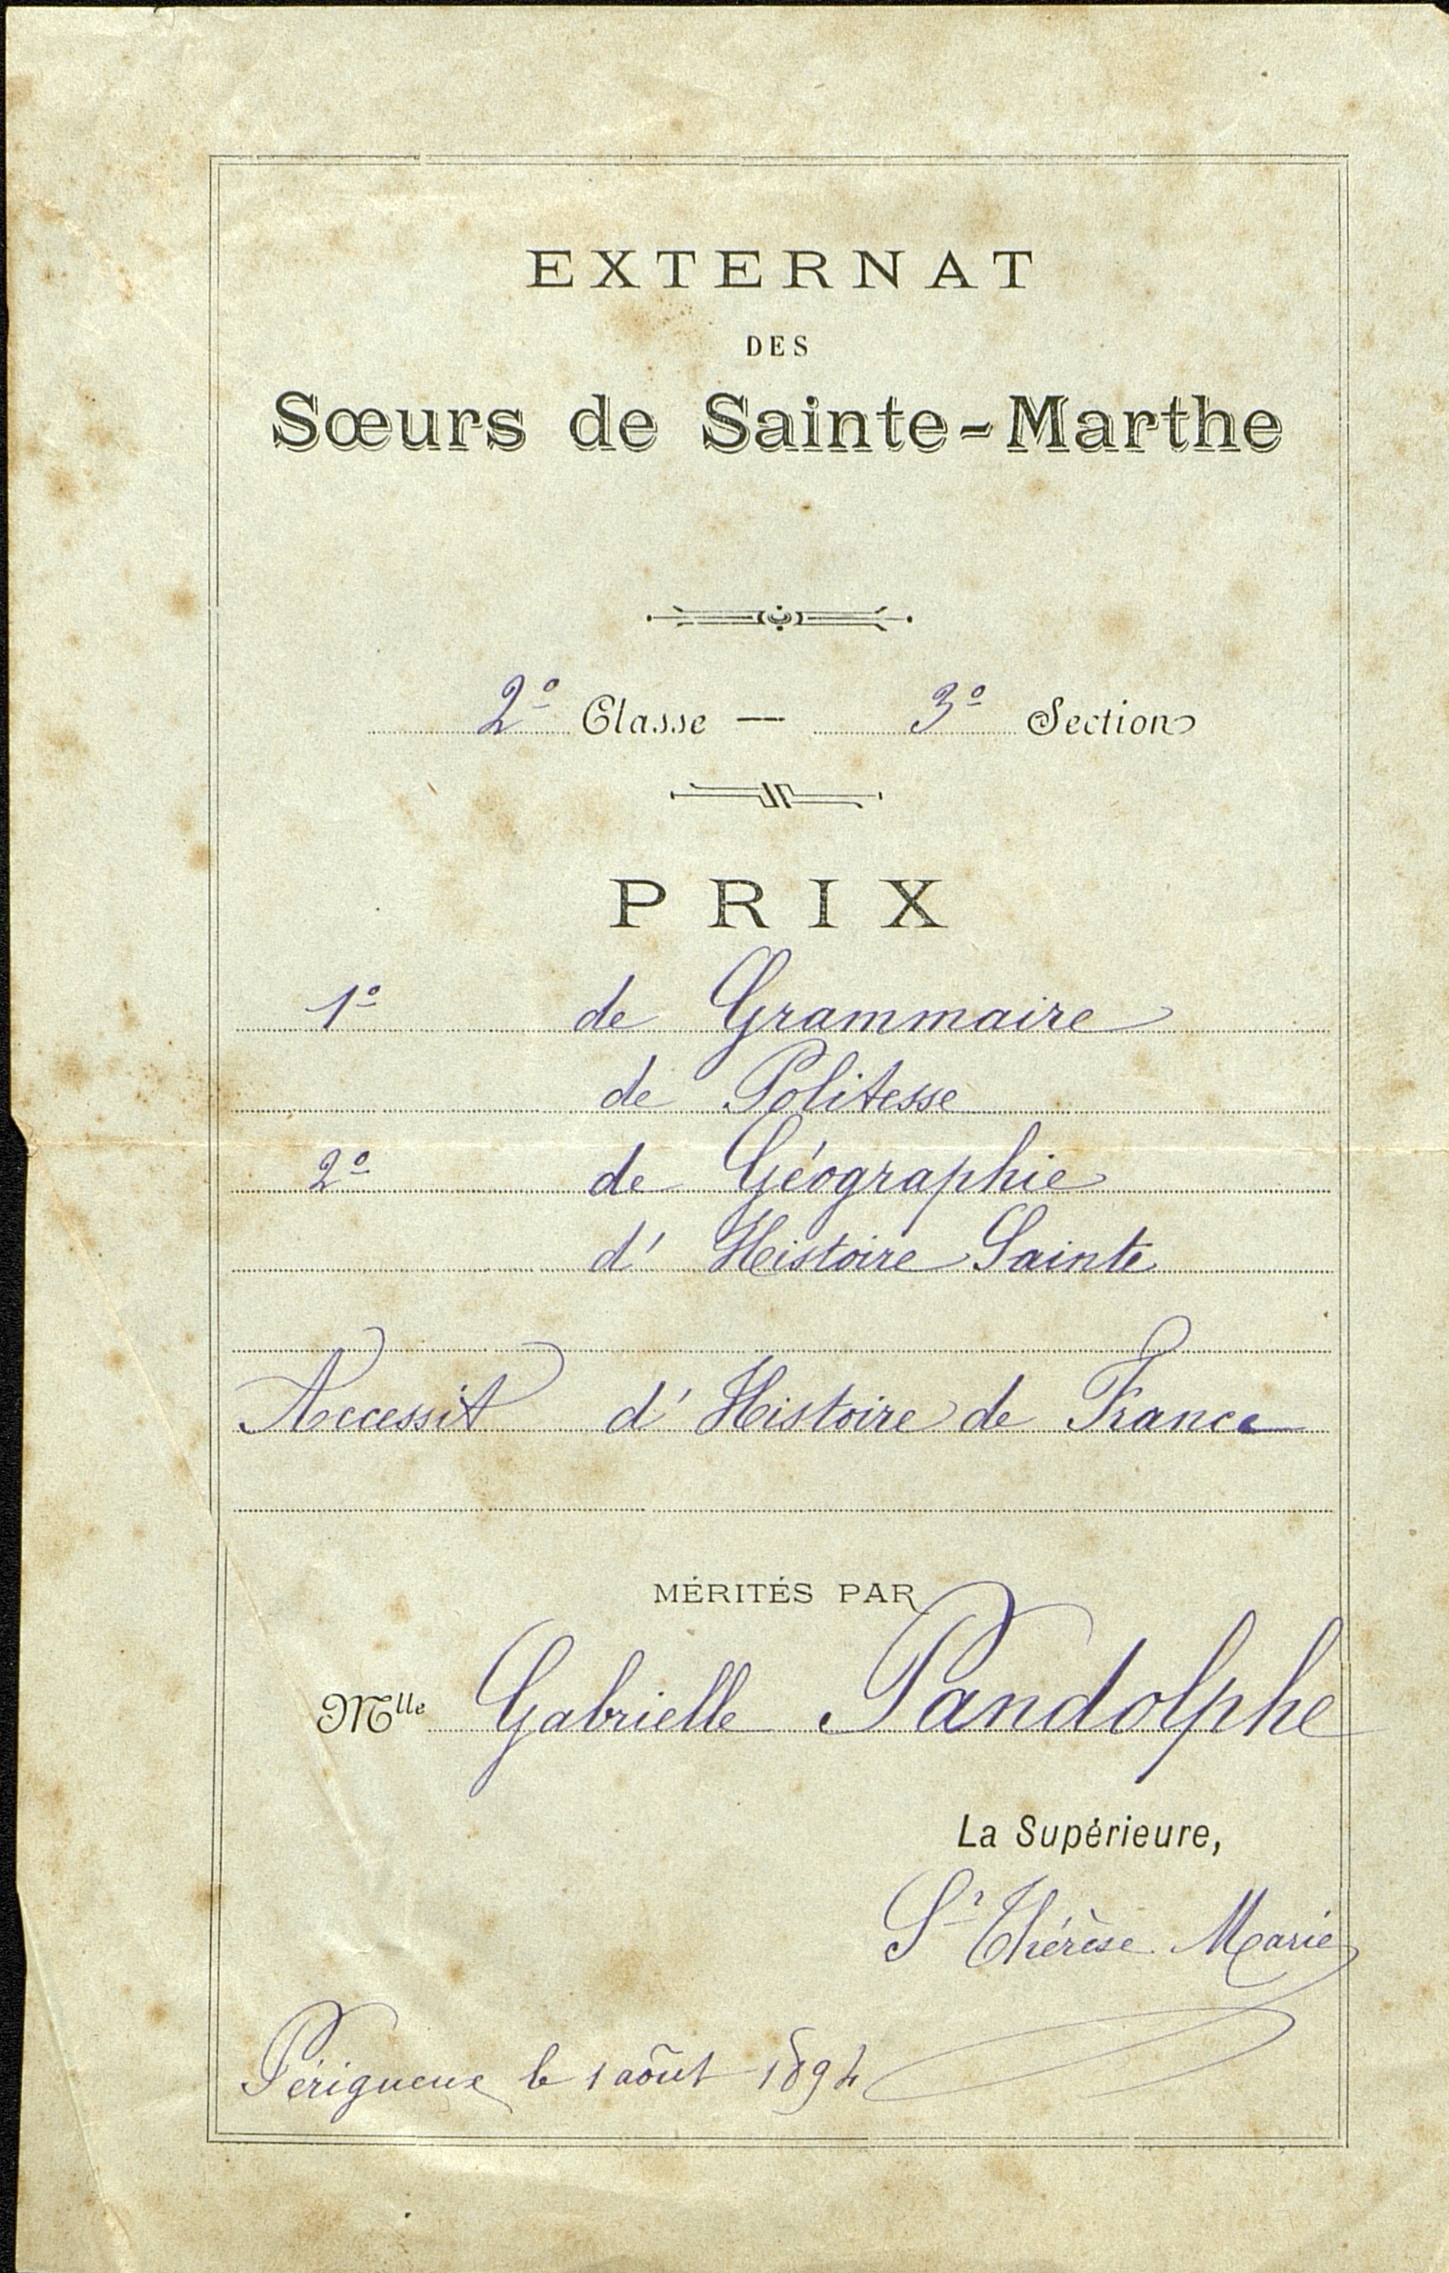 EXTERNAT
DES
Sœurs de Sainte-Marthe
2º Classe — 3º Section
PRIX
1º de Grammaire
de Politesse
2º de Géographie
d' Histoire Sainte
Accessit d' Histoire de France
MÉRITÉS PAR
Mlle Gabrielle Pandolphe
La Supérieure,
Sr Thérèse Marie
Périgueux le 1 août 1894